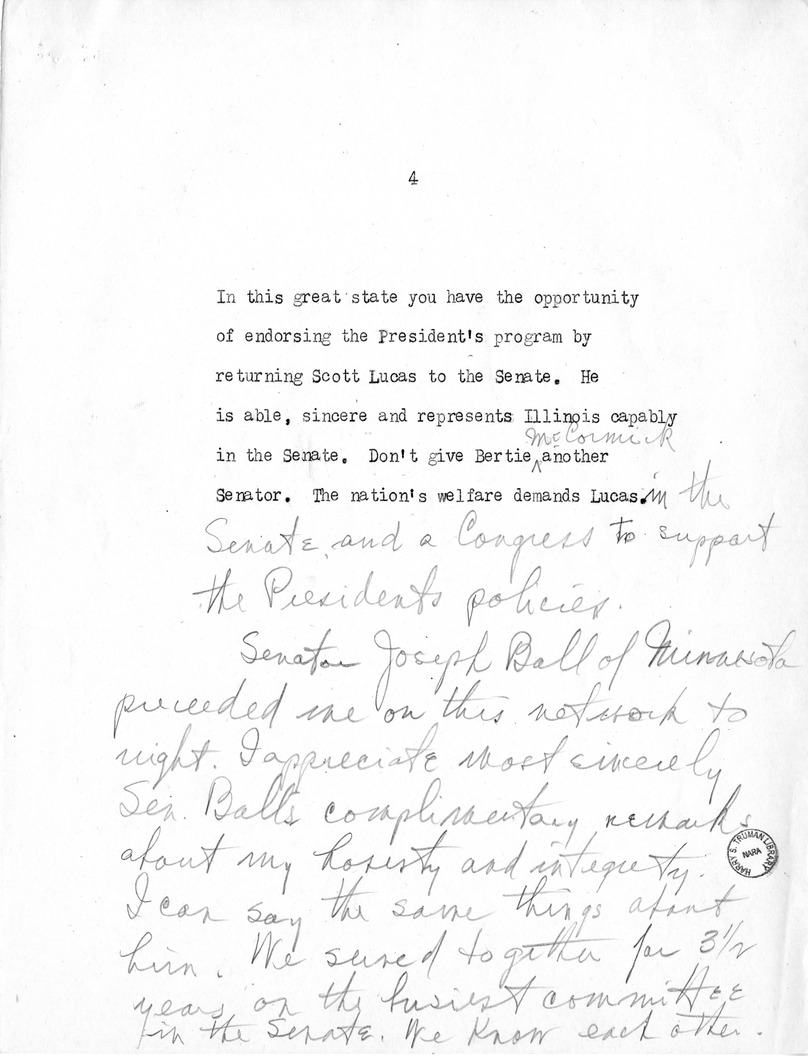 4
In this great state you have the opportunity
of endorsing the President's program by
returning Scott Lucas to the Senate. He
is able, sincere and represents Illinois capably
McCormick
in the Senate. Don't give Bertie ^ another
Senator. The nation's welfare demands Lucas. in the
Senate, and a Congress to support
the Presidents policies.
Senator Joseph Ball of Minnesota
preceeded me on this network to
night. I appreciate most sincerely
Sen. Ball's complimentary remarks
about my honesty and integrety.
HARRY S. TRUMAN LIBRARY
NARA
I can say the same things about
him. We served together for 3 1/2
years on the busiest committee
in the Senate. We know each other.